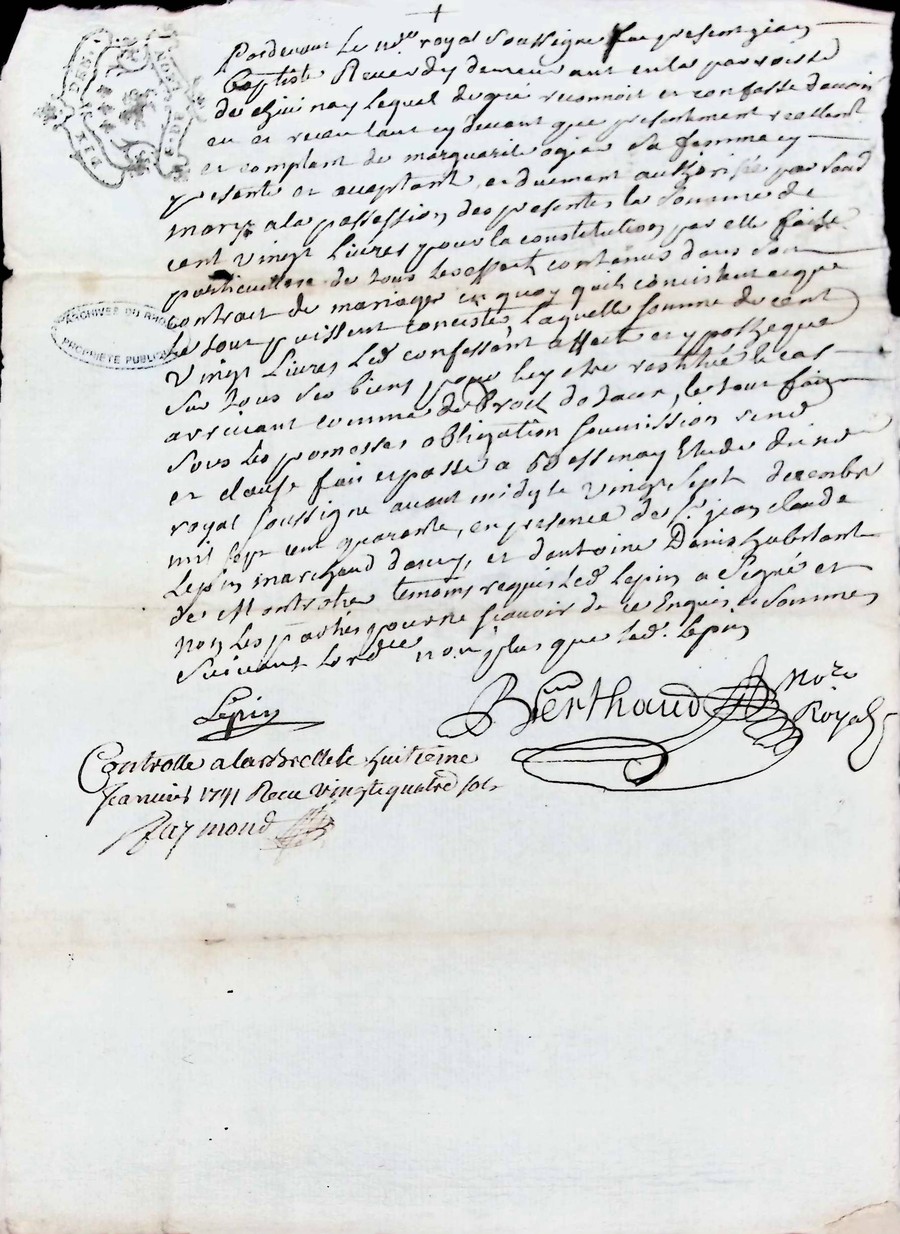 +
Pardevant le no.re royal soussigné fut present jean
Baptiste Reverdy demeurant en la parroisse
de chivinay lequel de gré reconnoit et confesse d'avoir
eu et receu tant cy devant que presentment reellemt
et comptant de marguerite ogier sa femme cy
presente et acceptant, et duement authorisée par sond
mary a la passession des presentes la somme de
cent vingt livres pour la constitution par elle faite
particuliere de tous les effects contenus dans son
contrat de mariage en quoy quils consistent et que
le tout puissent consister, laquelle somme de cent
vingt livres led confessant affecte et ypotheque
sur tous ses biens, pour luy etre restitué le cas
arrivant comme de droit, le tout fait
sous les promesses obligation soumission renon
et clause fait et passé a Bessenay Etude dud no
royal soussigné avant midy le vingt sept decembre
mil sept cent quarante, en presence de Sr. jean claude
Lepin marchand, et d'antoine Denis habitant
de Montrotier temoins requis led Lepin a signé et
non les parties pour ne scavoir de ce Enquis et sommés
suivant lordce non plus que led. Lepin
Lepin
Berthaud Nore
Royal
Controlle a larbrelle le huitieme
Janvier 1741 Receu vingt quatre sols
Raymond
GEN. DES.
ARCHIVES DU RHONE
PROPRIÉTÉ PUBLIQUE